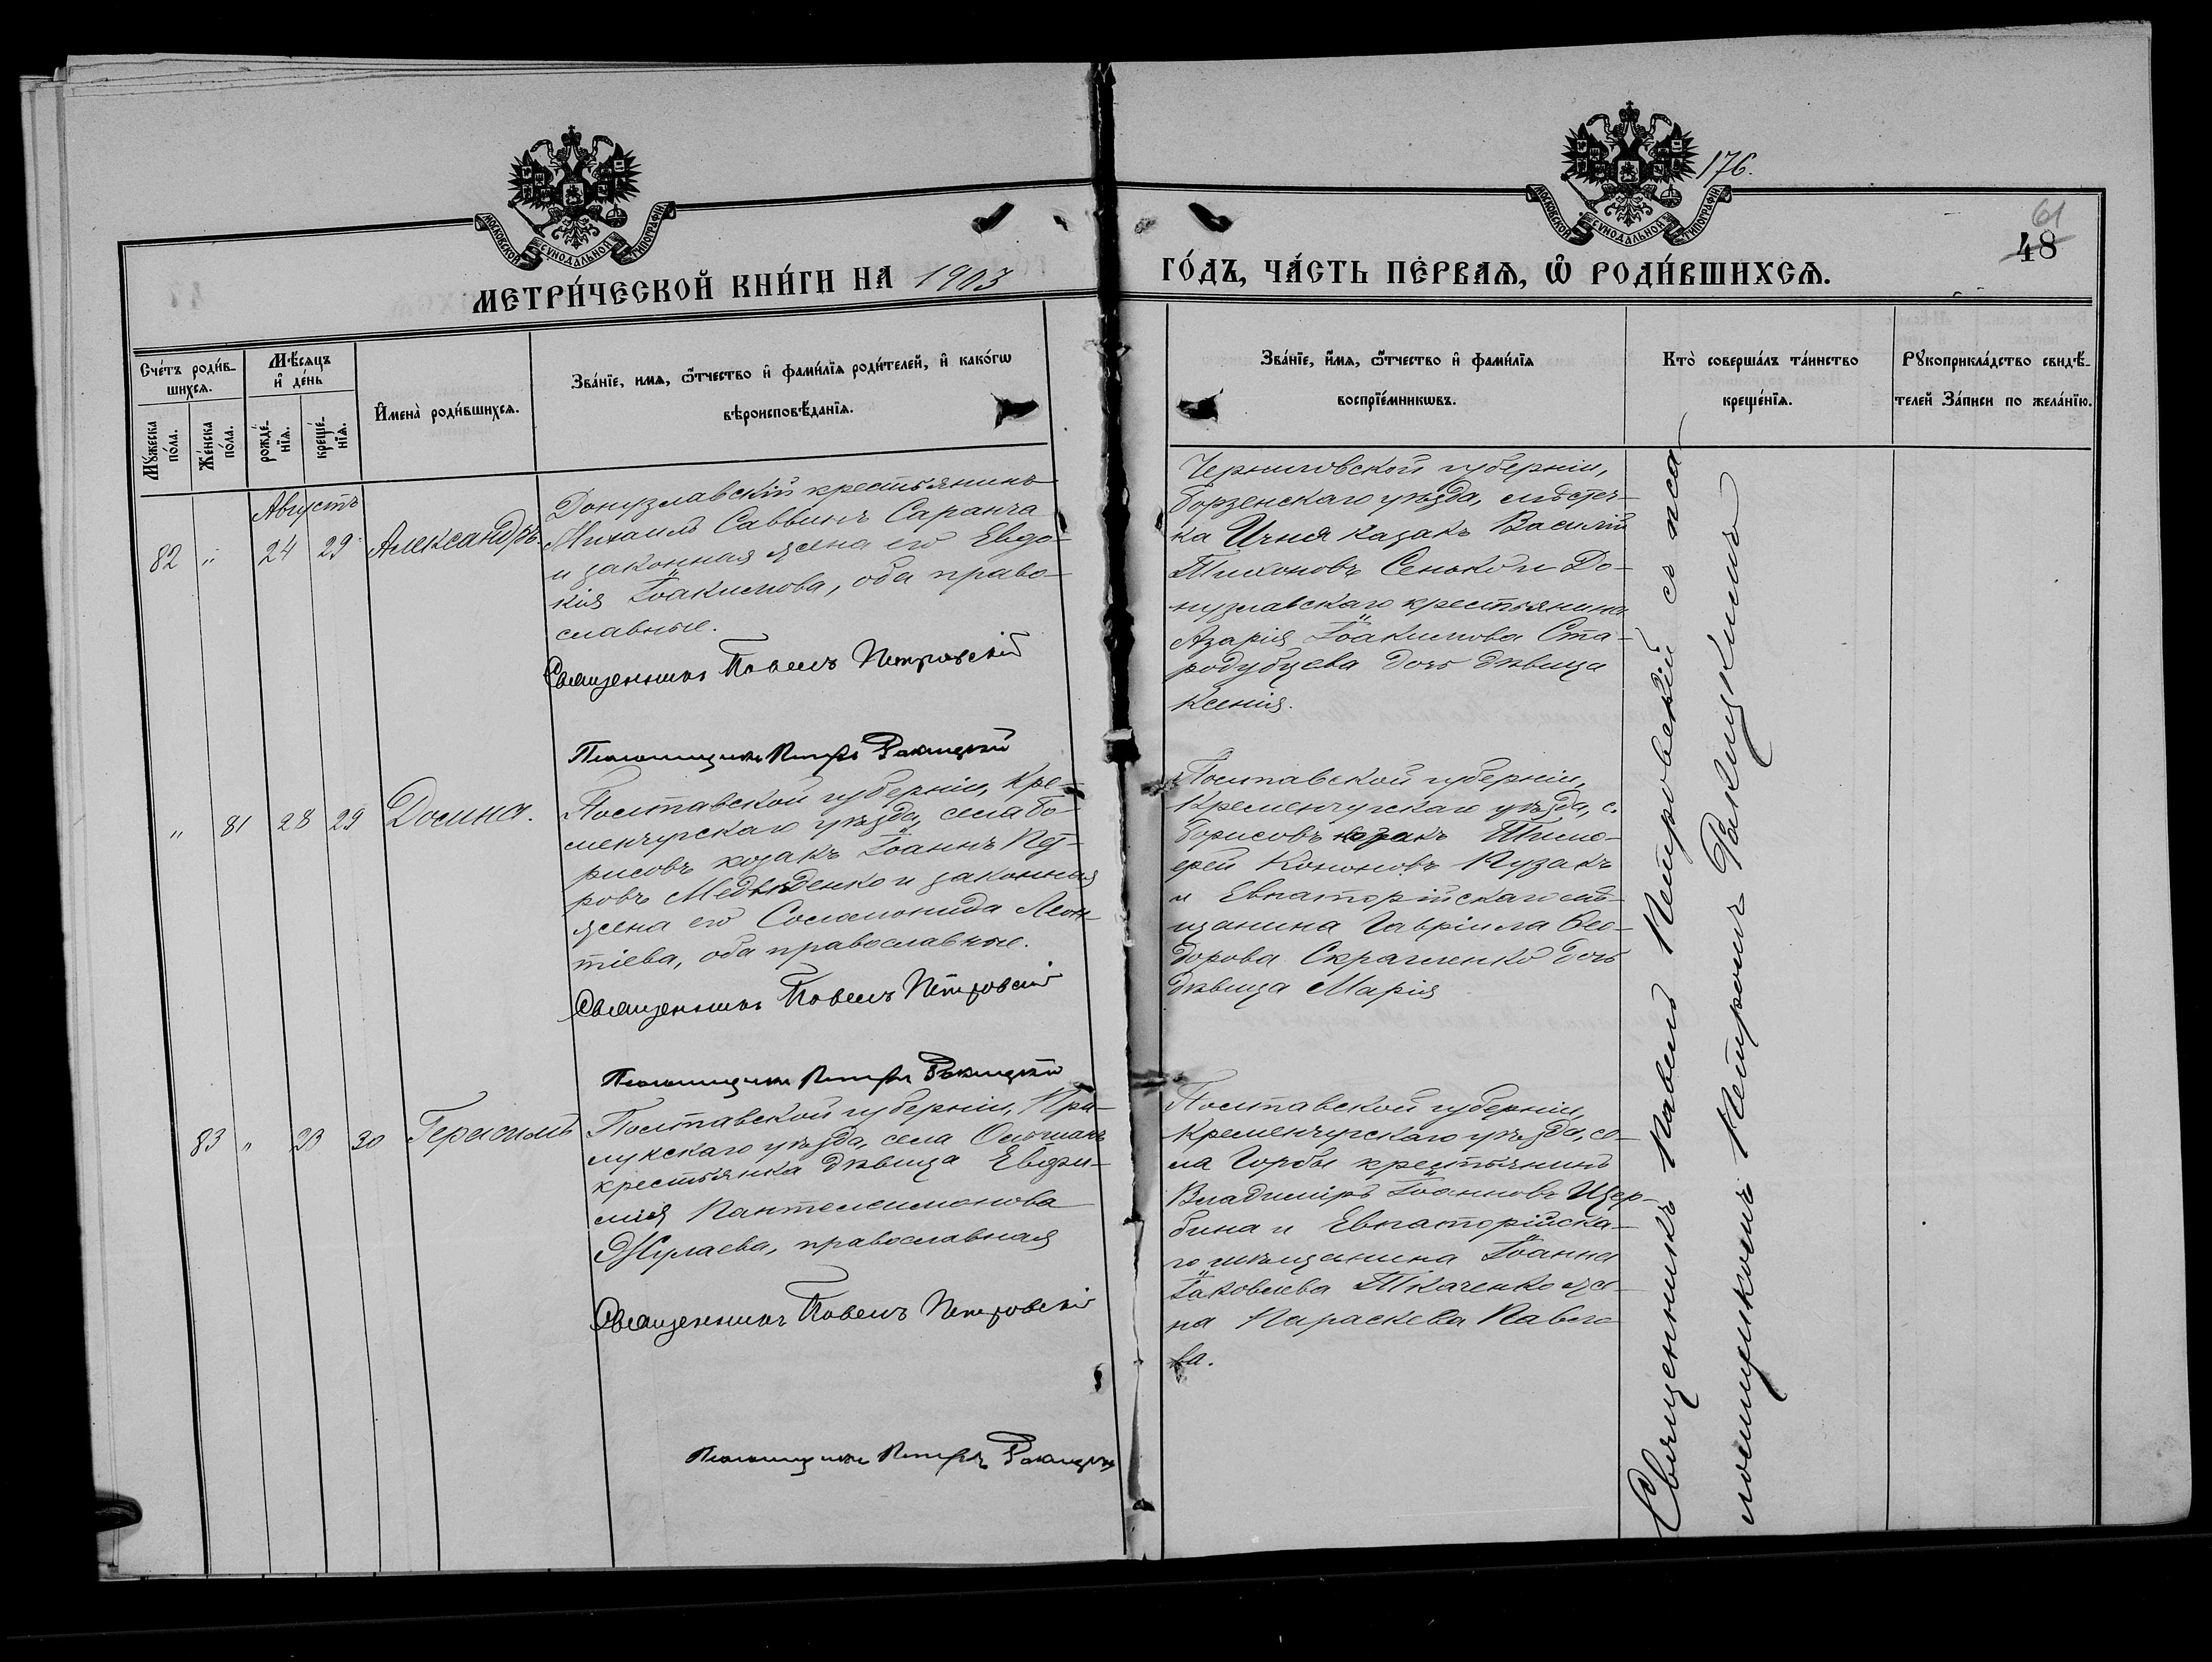 176.
61
48
МОСКОВСКОЙ СѴНОДАЛЬНОЙ ТИПОГРАФІИ
МОСКОВСКОЙ СѴНОДАЛЬНОЙ ТИПОГРАФІИ
МЕТРИ́ЧЕСКОЙ КНИ́ГИ НА 1903
ГО́ДЪ, ЧА́СТЬ ПЕ́РВАЯ, Ѿ РОДИ́ВШИХСЯ.
Сче́тъ роди́в-
шихся.
Мꙋ́жеска по́ла.
Же́нска по́ла.
Мѣ́сяцъ и҆ де́нь
рожде́-
нїя.
креще́-
нїя.
И҆мена̀ роди́вшихся.
Зва́нїе, имя, ѻ҆́тчество и҆ фами́лїя роди́телей, и҆ како́гѡ
вѣроисповѣ́данїя.
Зва́нїе, и҆́мя, ѻ҆́тчество и҆ фами́лїя
воспрїе́мникѡвъ.
Кто̀ соверша́лъ та́инство
креще́нїя.
Рꙋкоприкла́дство свидѣ́-
телей За́писи по жела́нїю.
Августъ
82 " 24 29 Александръ.
Донузлавскій крестьянинъ
Михаилъ Саввинъ Саранча
и законная жена его Евдо-
кія Іоакимова, оба право-
славные.
Священникъ Павелъ Петровскій
Псаломщикъ Петръ Ракицкій
Черниговской губерніи,
борзенскаго уѣзда, мѣстеч-
ка Ичня казакъ Василій
Тихоновъ Сенько и До-
нузлавскаго крестьянина
Азарія Іоакимова Ста-
родубцева дочь дѣвица
Ксенія.
" 81 28 29 Домна.
Полтавской губерніи, Кре-
менчугскаго уѣзда, села бо-
рисовъ козакъ Іоаннъ Пет-
ровъ Медвѣденко и законная
жена его Соломонида Леон-
тіева, оба православные.
Священникъ Павелъ Петровскій
Псаломщикъ Петръ Ракицкій
Полтавской губерніи,
Кременчугскаго уѣзда, с.
борисовъ козакъ Тимо-
ѳей Кононовъ Пузакъ
и Евпаторійскаго мѣ-
щанина Гавріила Ѳео-
дорова дочь
дѣвица Марія
83 " 23 30 Герасимъ
Полтавской губерніи, При-
лукскаго уѣзда, села
крестьянка дѣвица Евфи-
мія Пантелеимонова
Жулаева, православная
Священникъ Павелъ Петровскій
Псаломщикъ Петръ Ракицкій
Полтавской губерніи,
Кременчугскаго уѣзда, се-
ла Горбы крестьянинъ
Владиміръ Іоанновъ Щер-
бина и Евпаторійска-
го мѣщанина Іоанна
Іаковлева Ткаченко же-
на Параскева Павло-
ва.
Священникъ Павелъ Петровскій съ пса-
ломщикомъ Петромъ Ракицкимъ